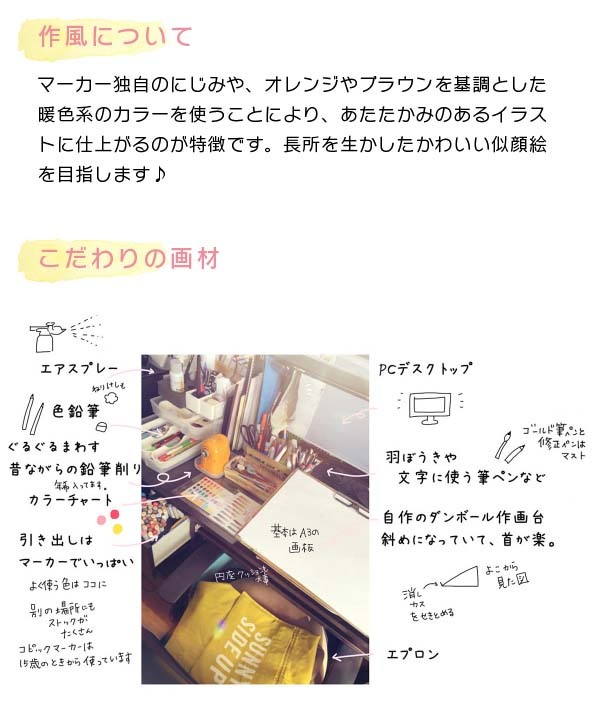 作風について
マーカー独自のにじみや、オレンジやブラウンを基調とした
暖色系のカラーを使うことにより、あたたかみのあるイラス
トに仕上がるのが特徴です。長所を生かしたかわいい似顔絵
を目指します♪
こだわりの画材
エアスプレー
ねりけしも
色鉛筆
ぐるぐるまわす
昔ながらの鉛筆削り
カラーチャート
引き出しは
マーカーでいっぱい
よく使う色はココに
別の場所にも
ストックが
たくさん
コピックマーカーは
15歳のときから使っています
基本はA3の
画板
SUNNY
SIDE UP
PCデスクトップ
ゴールド筆ペンと
修正ペンは
マスト
羽ぼうきや
文字に使う筆ペンなど
自作のダンボール作画台
斜めになっていて、首が楽。
よこから
見た図
消し
カス
をせきとめる
エプロン